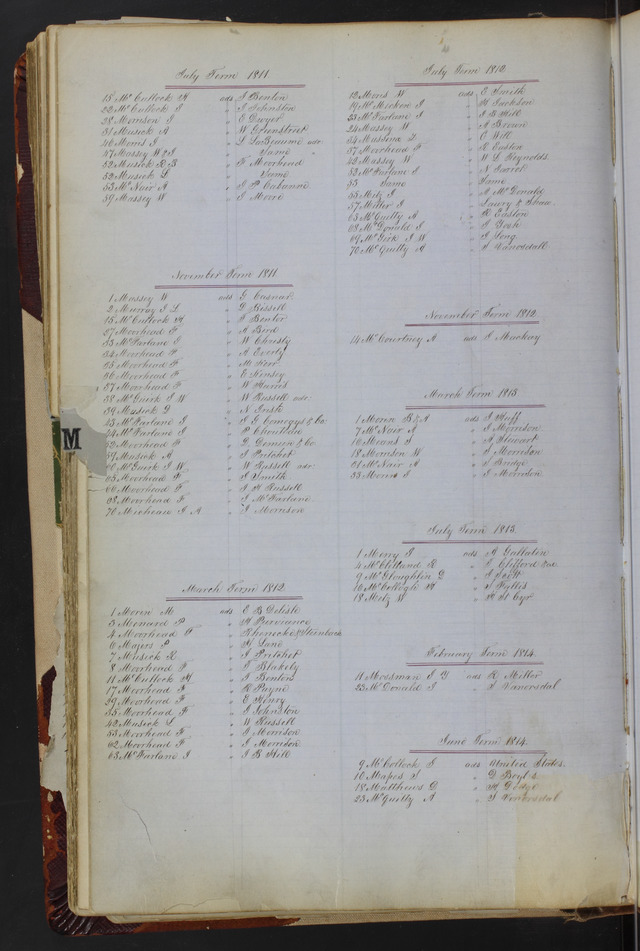 July Term 1811
15 Mc Cullock H ads J Benton
22 Mc Cullock J " J Johnston
28 Morrison J " E Dwyer
31 Musick A " W Grunstret
46 Morris J " L LaBeaume adr
47 Massey W & J " Same "
52 Musick R B " F Moorhead
53 Musick L " Same
55 Mc Nair A " J P Cabanne
59 Massey W " J Moore
November Term 1811
1 Massey W ads G Casner
2 Murray J L " D Bissell
15 Mc Cullock H " J Benton
27 Moorhead F " A Bird
33 Mc Farlane J " W Christy
34 Moorhead F " A Everly
35 Moorhead F " M Kerr
36 Moorhead F " E Kinsey
37 Moorhead F " W Harris
38 Mc Guirk J W " W Russell adr
39 Musick D " N Irish
43 Mc Farlane J " J G Comegys & Co
44 Mc Farlane J " P Chouteau
52 Moorhead F " L Demun & Co
59 Musick A " J Pritchet
60 Mc Guirk J W " W Russell adr
65 Moorhead F " J Smith
66 Moorhead F " J H Russell
68 Moorhead F " J Mc Farlane
70 Micheau J A " J Morrison
M
March Term 1812
1 Moren M ads E B Delisle
3 Monard P " H Perviance
4 Moorhead F " Rhonecke & Steinback
6 Majers P " H Lane
7 Musick R " J Pritchet
8 Moorhead F " F Blakely
11 Mc Cullock H " J Benton
17 Moorhead F " R Payne
29 Moorhead F " E Henry
35 Moorhead F " J Johnston
42 Musick L " W Russell
53 Moorhead F " J Morrison
62 Moorhead F " J Morrison
63 Mc Farlane J " J B Hill
July Term 1812
12 Moris W ads E Smith
19 Mc Mickon J " H Jackson
23 Mc Farlane J " J B Hill
24 Massey W " A Brown
34 Massena L " C Will
37 Moorhead F " R Easton
42 Massey W " W L Reynolds
52 Mc Farlane J " N Jarrot
53 Same " Same
55 Milz J " A Mc Donald
57 Miller J " Saury & Shaw
63 Mc Guilty A " R Easton
68 Mc Donald J " J Gosh
69 Mc Girk J W " J Long
70 Mc Guilty A " J Vanosdall
November Term 1812
14 Mc Courtney A ads J Mackay
March Term 1813
1 Moren B & A ads J Huff
7 Mc Nair A " J Morrison
10 Morans J " A Stewart
18 Morrison W " J Morrison
21 Mc Nair A " J Bridge
33 Moris J " J Morrison
July Term 1813
1 Merry J ads A Gallatin
4 Mc Clelland R " J Clifford &al
9 Mc Gloughlin D " J Scott
10 Mc Cullogh H " J Hollis
18 Milz W " H St Cyr
February Term 1814
11 Mossman J Y ads R Miller
23 Mc Donald J " J Vanorsdal
June Term 1814
9 Mc Collock J ads United States
10 Mapes J " D Boyls
18 Matthews D " H Dodge
23 Mc Guilty A " J Vanorsdal